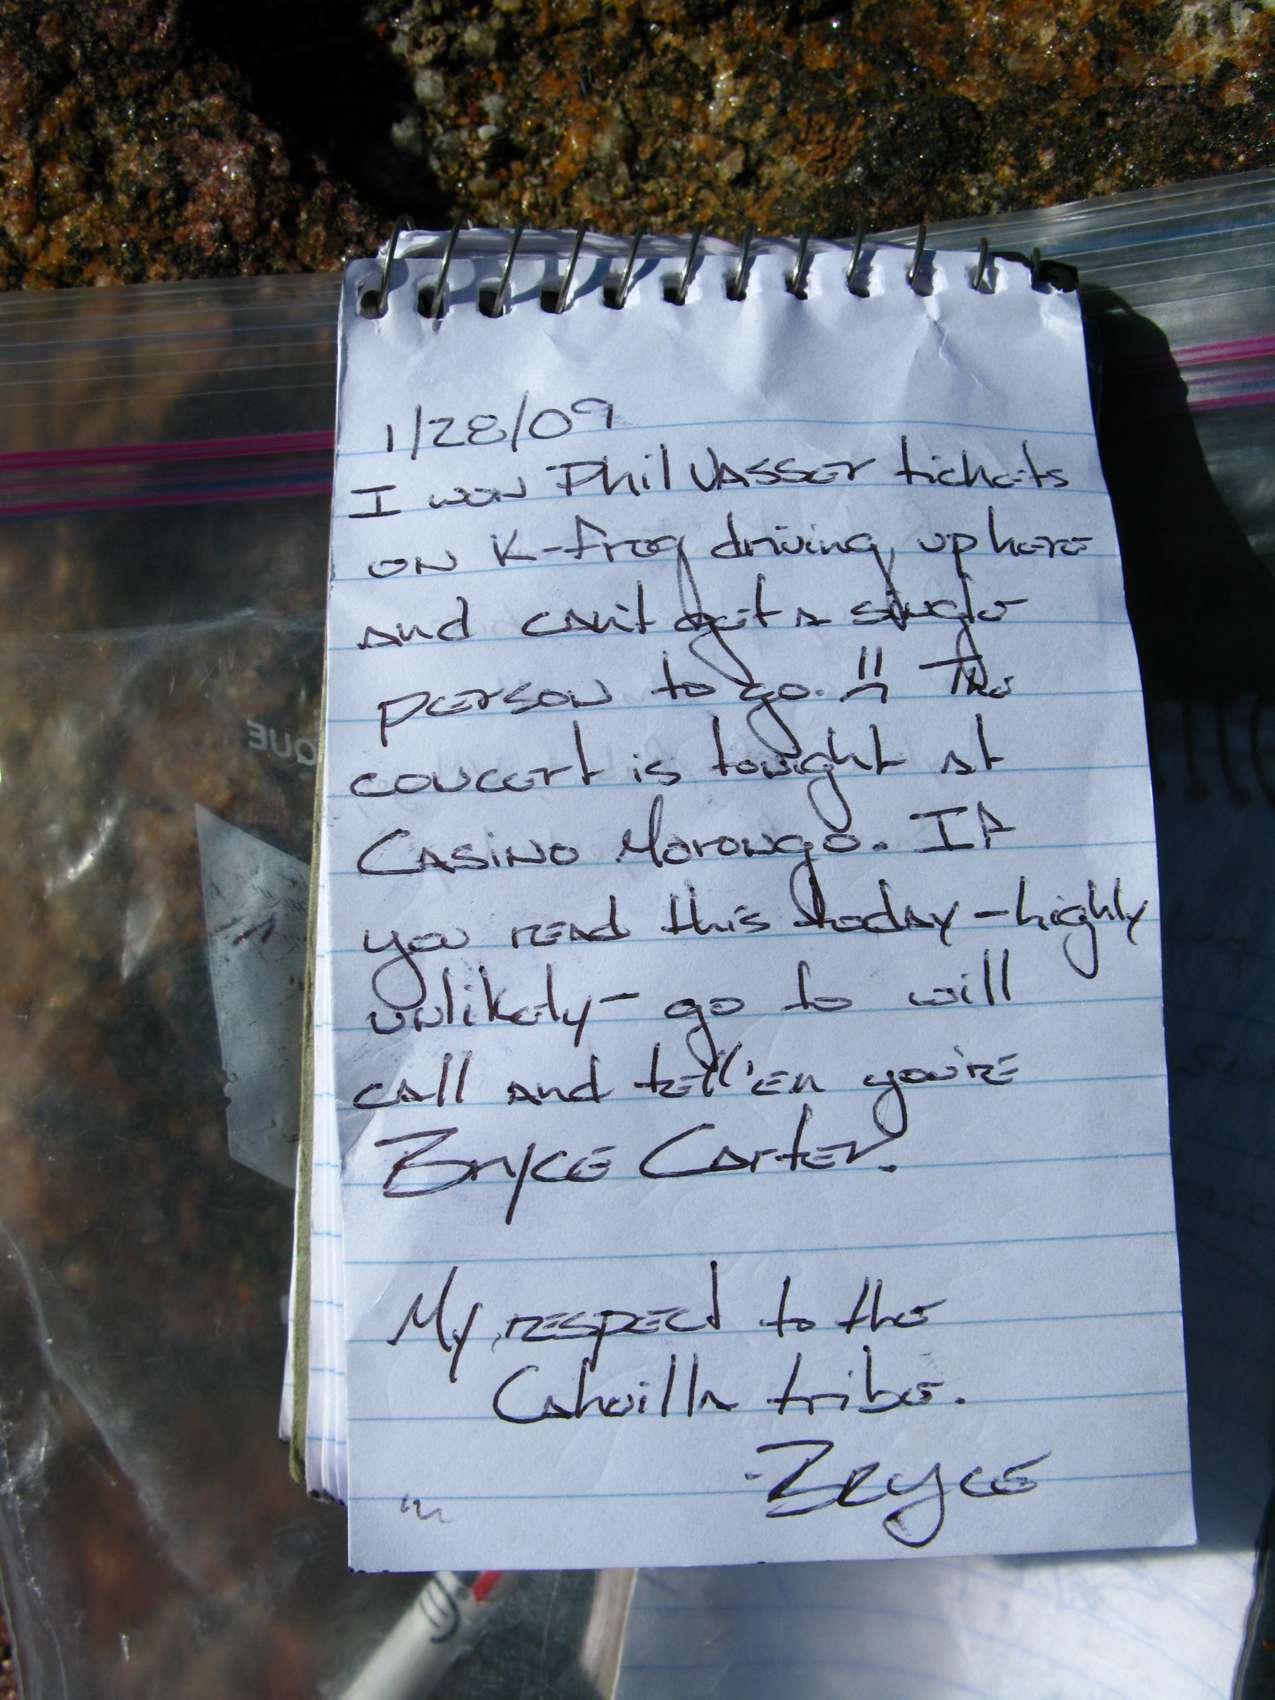 1/28/09
I won Phil Vasser tickets
on K-frog driving up here
and can't get a single
person to go. The
concert is tonight at
Casino Morongo. If
you read this today - highly
unlikely - go to will
call and tell 'em you're
Bryce Carter.
My respect to the
Cahuilla tribe.
-Bryce